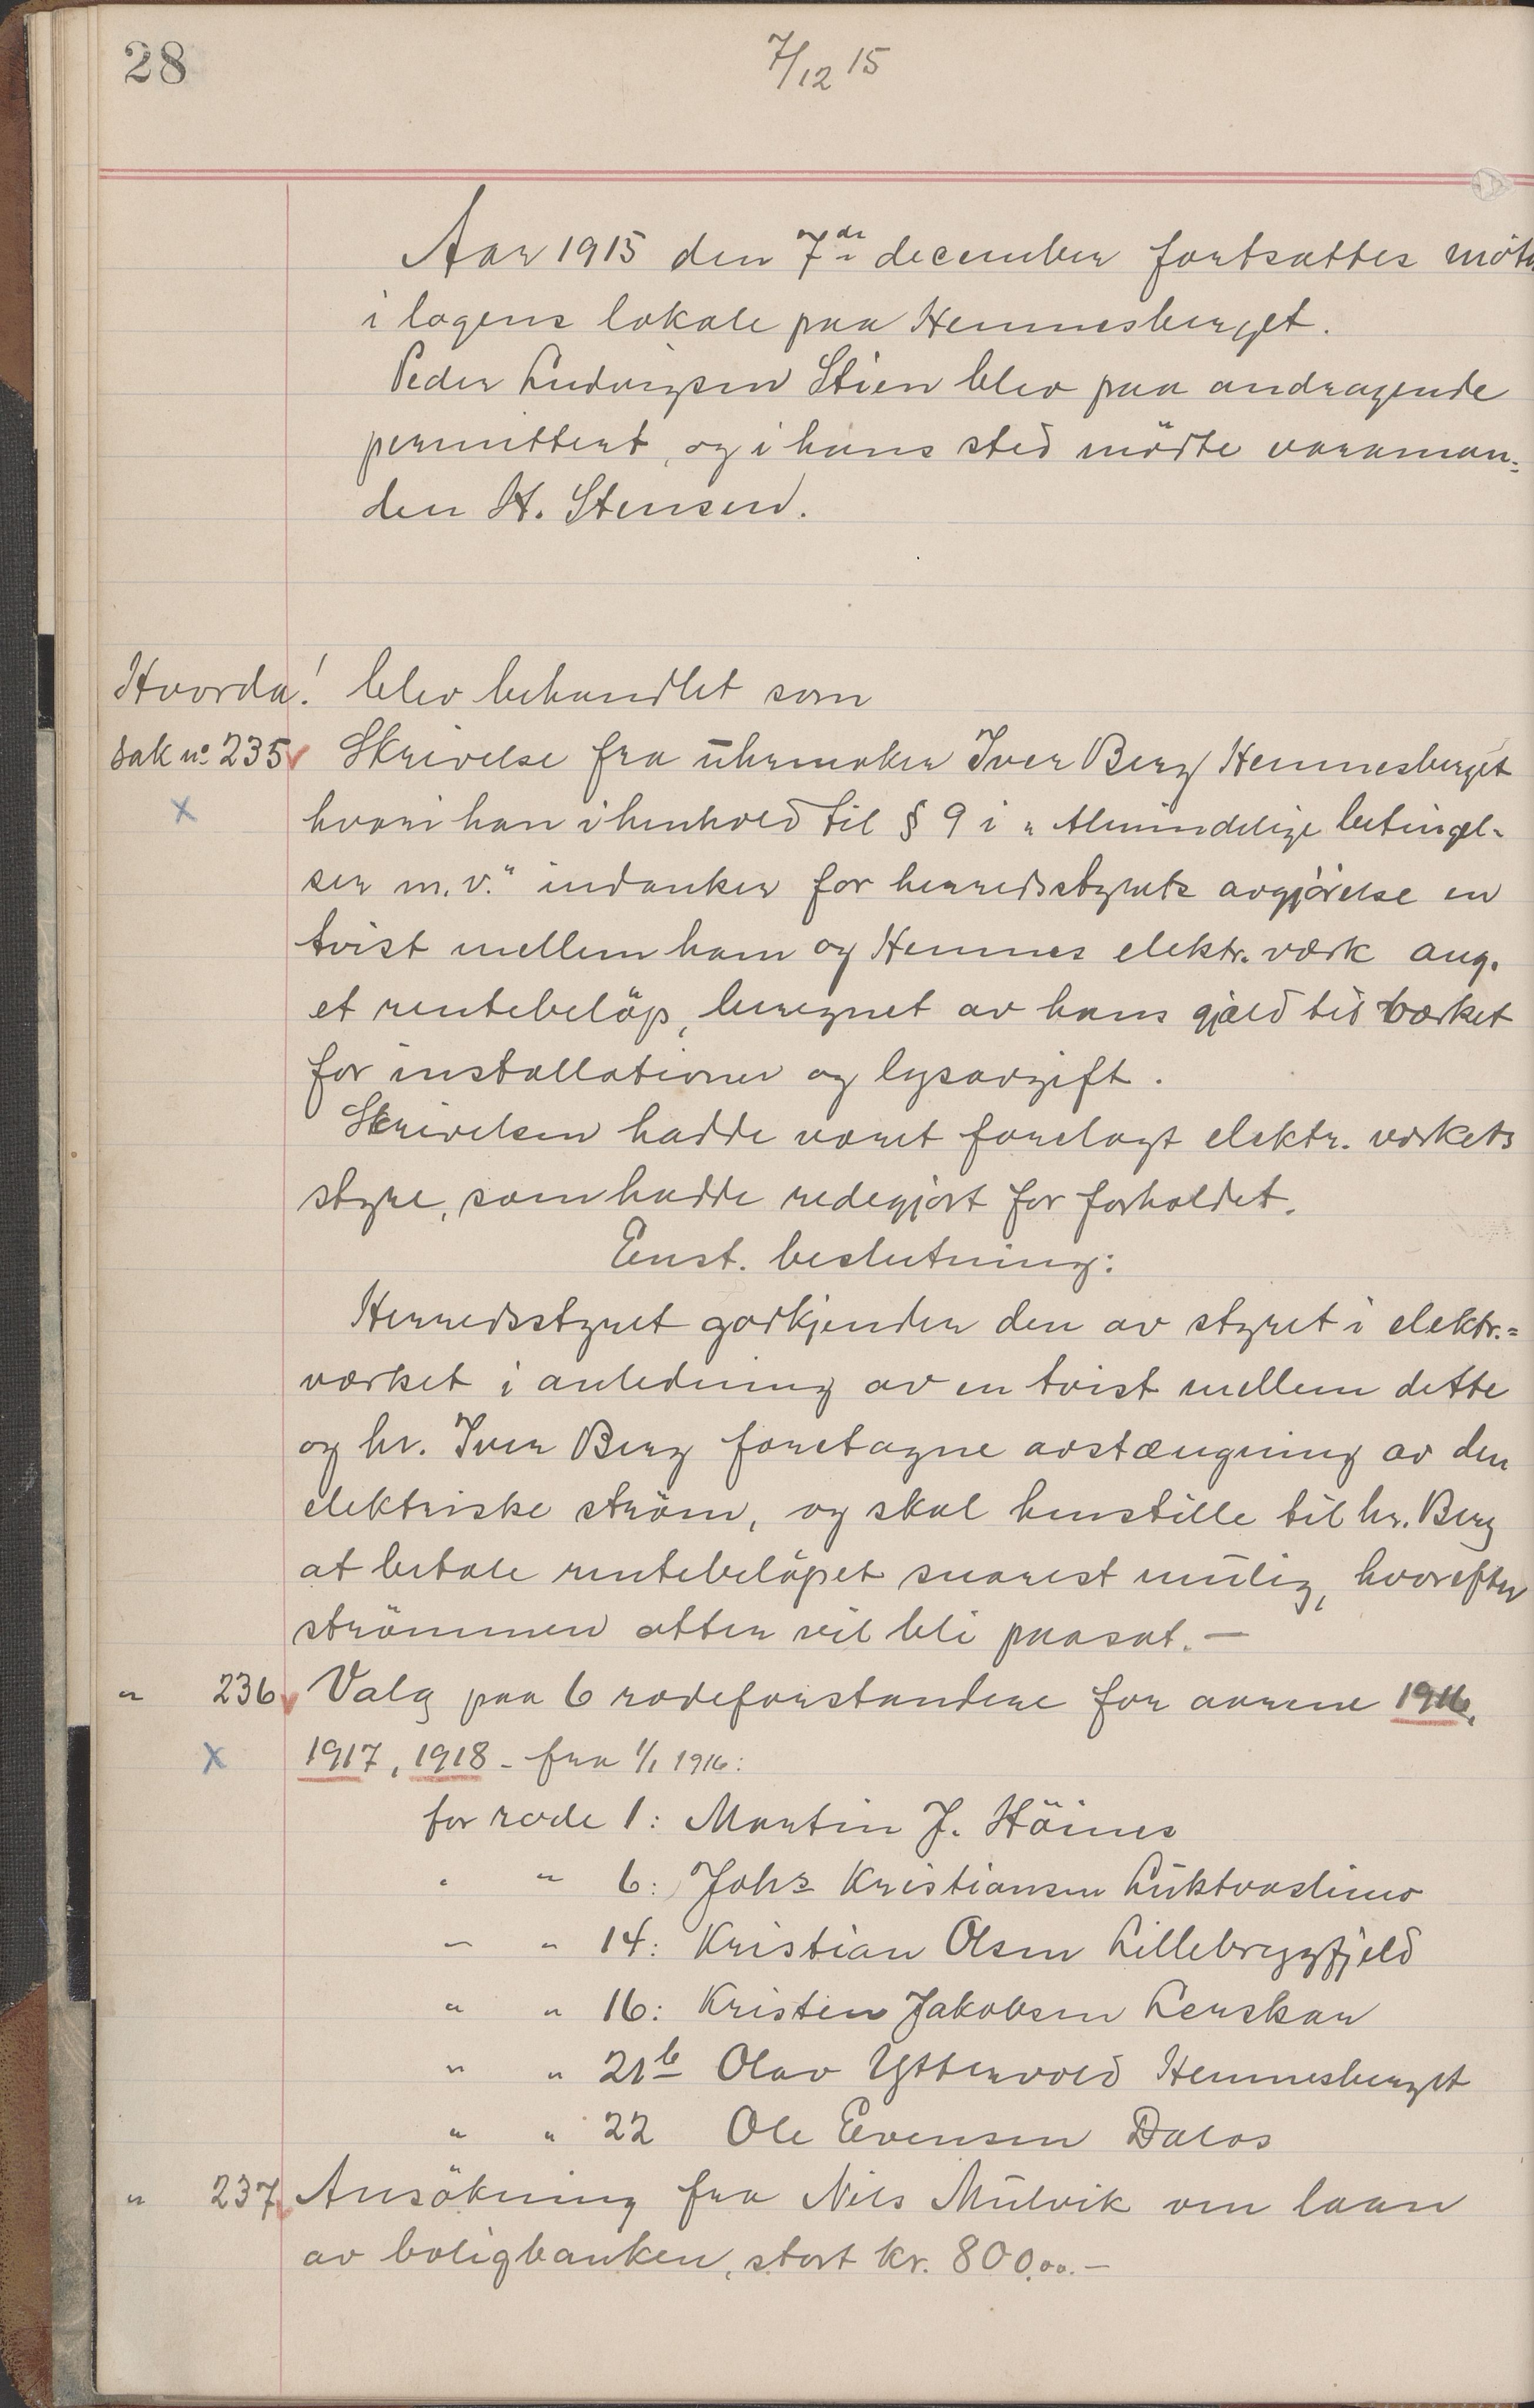 28
7/12 15
Aar 1915 den 7de december fortsattes møte
i logens lokale paa Hemnesberget.
Peder Ludvigsen Stien blev paa andragende
permittert, og i hans sted mödte varaman=
den H. Stensen.
Hvorda! blev behandlet som
Sak no 235 Skrivelse fra uhrmaker Iver Berg Hemnesberget
hvori han i henhold til § 9 i „Almindelige betingel-
ser m.v.“ indanker for herredsstyrets avgjörelse en
tvist mellem ham og Hemnes elektr. værk ang.
et rentebelöp, beregnet av hans gjæld til værket
for installationer og lysavgift.
Skrivelsen hadde været forelagt elektr. værkets
styre, som hadde redegjort for forholdet.
Enst. beslutning:
Herredsstyret godkjender den av styret i elektr.=
værket i anledning av en tvist mellem dette
og hr. Iver Berg foretagne avstængning av den
elektriske ström, og skal henstille til hr. Berg
at betale rentebelöpet snarest mulig, hvorefter
strömmen atter vil bli paasat. —
„ 236 Valg paa 6 rodeforstandere for aarene 1916,
1917, 1918 - fra 1/1 1916:
for rode 1: Martin J. Höines
„ „ 6: Johs Kristiansen Luktvaslimo
„ „ 14: Kristian Olsen Lillebryggfjeld
„ „ 16: Kristen Jakobsen Lerskar
„ „ 21b Olav Yttervold Hemnesberget
„ „ 22 Ole Evensen Dalos
„ 237 Ansökning fra Nils Mulvik om laan
av boligbanken, stort kr. 800,00. —